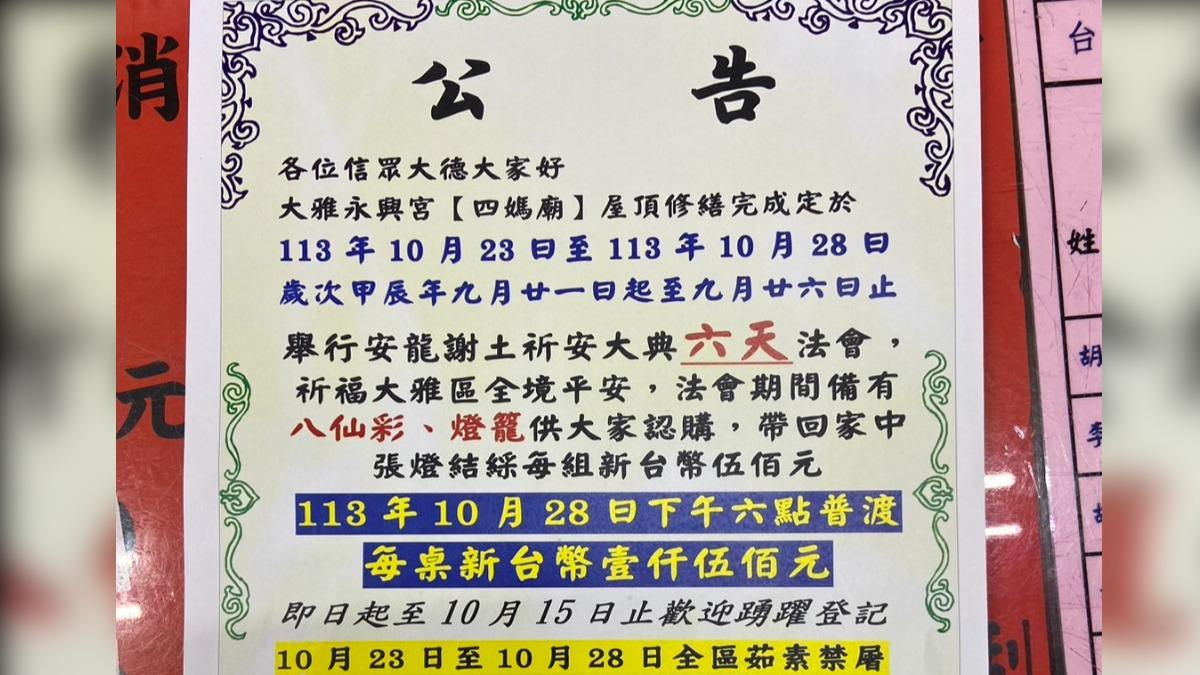 公告
各位信眾大德大家好
大雅永興宮【四媽廟】屋頂修繕完成定於
113 年 10 月 23 日至 113 年 10 月 28 日
歲次甲辰年九月廿一日起至九月廿六日止
舉行安龍謝土祈安大典六天法會，
祈福大雅區全境平安，法會期間備有
八仙彩、燈籠供大家認購，帶回家中
張燈結綵每組新台幣伍佰元
113 年 10 月 28 日下午六點普渡
每桌新台幣壹仟伍佰元
即日起至 10 月 15 日止歡迎踴躍登記
10 月 23 日至 10 月 28 日全區茹素禁屠
消
元
台
姓
胡
李